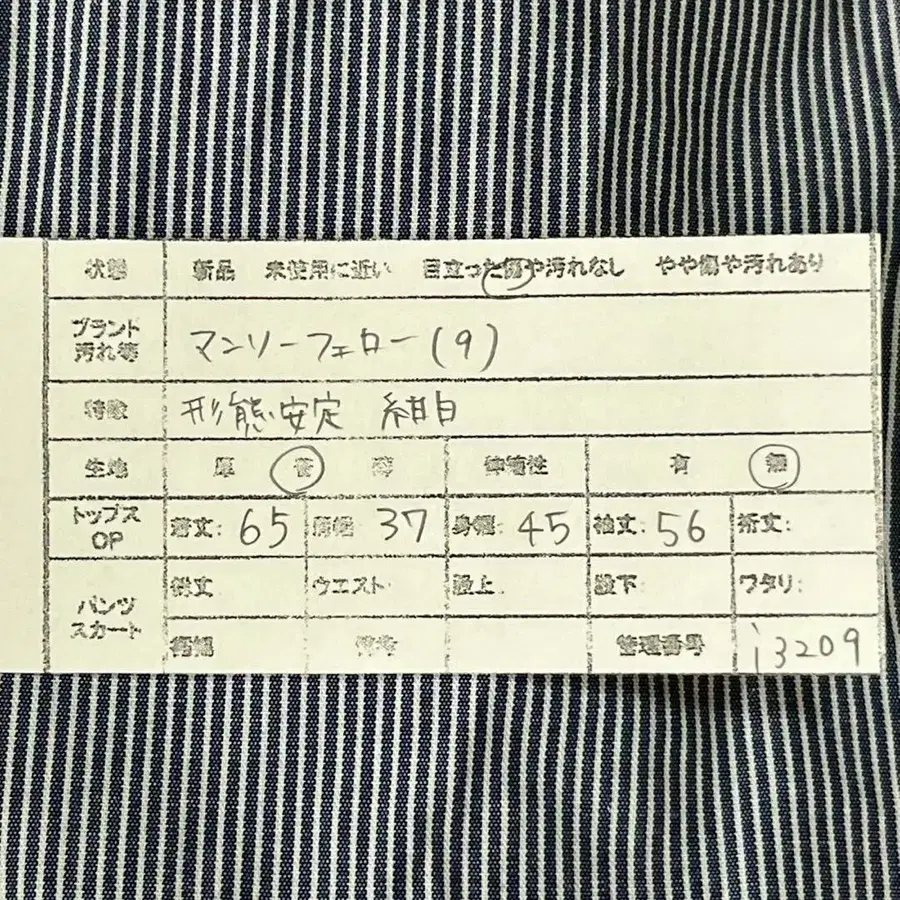 状態 新品 未使用に近い 目立った傷や汚れなし やや傷や汚れあり
ブランド 汚れ等 マンリーフェロー(9)
特徴 形態安定 紺白
生地 厚 普 薄 伸縮性 有 無
トップス OP 着丈: 65 肩幅: 37 身幅: 45 袖丈: 56 裄丈:
パンツ スカート 総丈 ウエスト 股上 股下 ワタリ:
裾幅 備考 管理番号 i3209